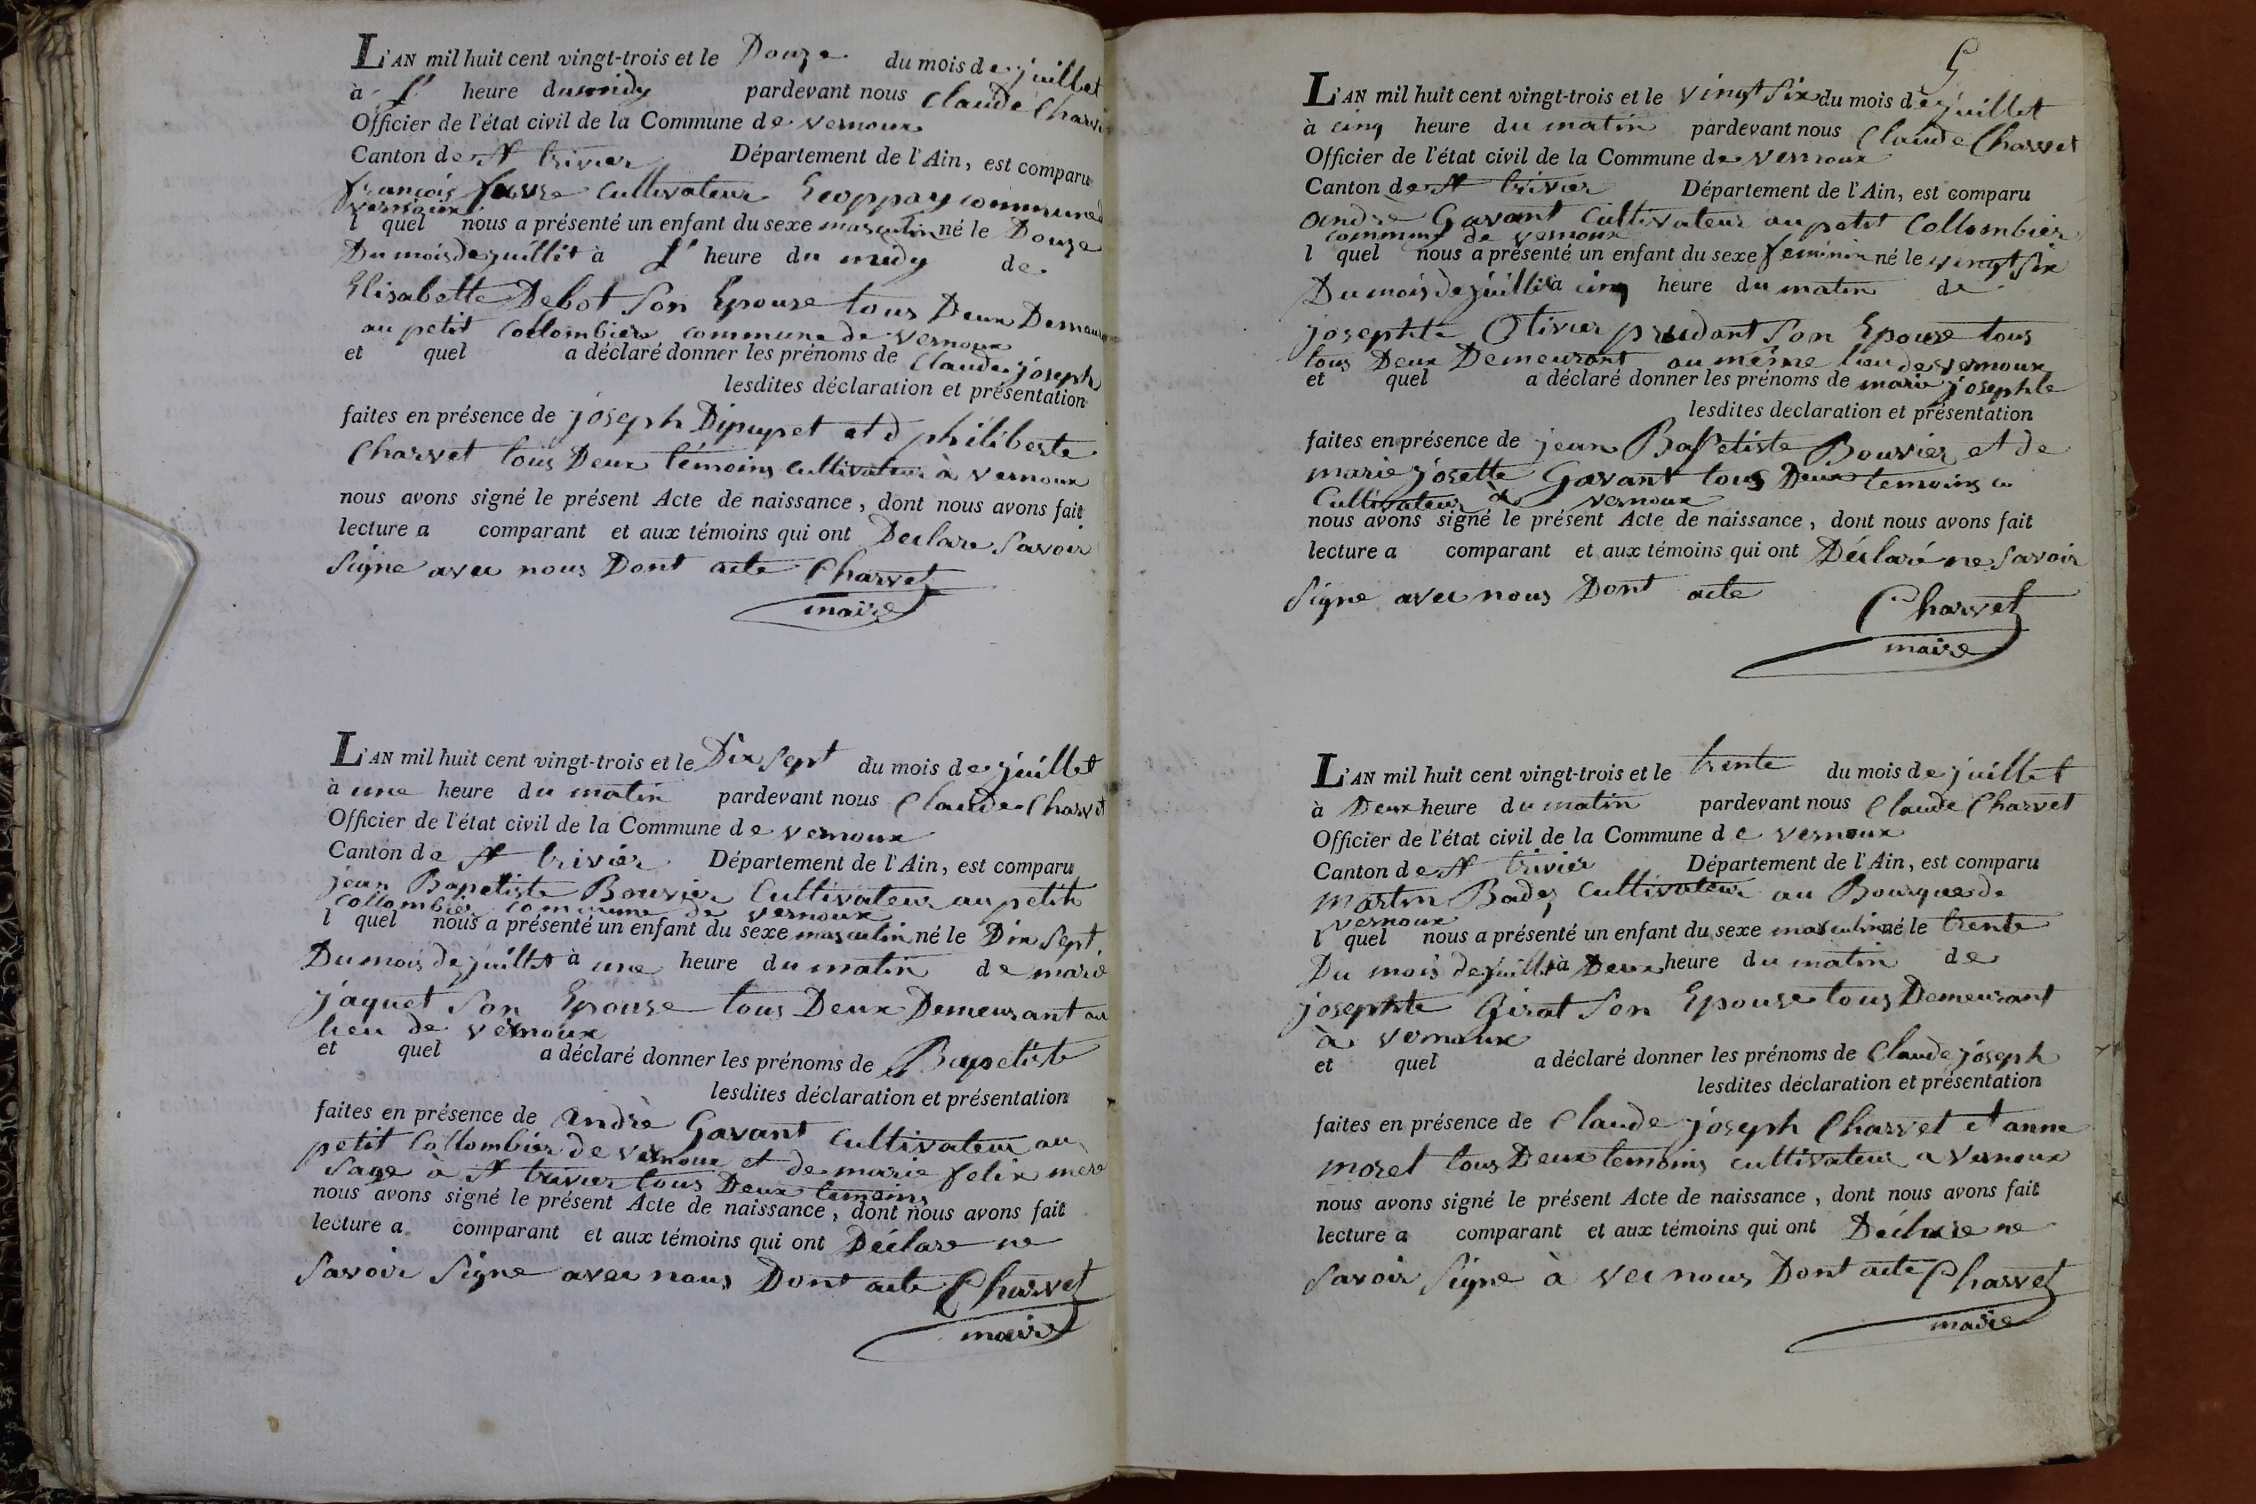 L'AN mil huit cent vingt-trois et le Douze du mois de juillet
à 1' heure du midy pardevant nous Claude Charv
Officier de l'état civil de la Commune de vernoux
Canton de St trivier Département de l'Ain, est comparu
françois favre Cultivateur commune d
vernoux
l quel nous a présenté un enfant du sexe masculin né le Douze
Du mois de juillet à 1' heure du midy de
Elisabette Debot Son Epouse tous Deux Demeur
au petit Collombier commune de vernoux
et quel a déclaré donner les prénoms de Claude joseph
lesdites déclaration et présentation
faites en présence de joseph Dipupet et d philiberte
Charvet tous Deux témoins Cultivateur à vernoux
nous avons signé le présent Acte de naissance, dont nous avons fait
lecture a comparant et aux témoins qui ont Declare Savoir
Signe avec nous Dont acte Charvet
maire
L'AN mil huit cent vingt-trois et le Dix Sept du mois de juillet
à une heure du matin pardevant nous Claude Charvet
Officier de l'état civil de la Commune de vernoux
Canton de St trivier Département de l'Ain, est comparu
jean Bapetiste Bouvier Cultivateur au petit
Collombier commune de vernoux
l quel nous a présenté un enfant du sexe masculin né le Dix Sept
Du mois de juillet à une heure du matin de marie
jaquet Son Epouse tous Deux Demeurant au
lieu de vernoux
et quel a déclaré donner les prénoms de Bapetiste
lesdites déclaration et présentation
faites en présence de andrè Gavant Cultivateur au
petit Collombier de vernoux et de marie felix mere
Sage à St trivier tous Deux temoins
nous avons signé le présent Acte de naissance, dont nous avons fait
lecture a comparant et aux témoins qui ont Déclare ne
Savoir Signe avec nous Dont acte Charvet
maire
5
L'AN mil huit cent vingt-trois et le vingt Six du mois de juillet
à cinq heure du matin pardevant nous Claude Charvet
Officier de l'état civil de la Commune de vernoux
Canton de St trivier Département de l'Ain, est comparu
andrè Gavant Cultivateur au petit Collombier
commune de vernoux
l quel nous a présenté un enfant du sexe feminin né le vingt Six
Du mois de juillet à cinq heure du matin de
josephte Olivier prudant Son Epouse tous
tous Deux Demeurant au même lieu de vernoux
et quel a déclaré donner les prénoms de marie josephte
lesdites declaration et présentation
faites en présence de jean Bapetiste Bouvier et de
marie josette Gavant tous Deux temoins
Cultivateur à vernoux
nous avons signé le présent Acte de naissance, dont nous avons fait
lecture a comparant et aux témoins qui ont Déclaré ne Savoir
Signe avec nous Dont acte
Charvet
maire
L'AN mil huit cent vingt-trois et le trente du mois de juillet
à Deux heure du matin pardevant nous Claude Charvet
Officier de l'état civil de la Commune de vernoux
Canton de St trivier Département de l'Ain, est comparu
martin Badez Cultivateur au Bourque de
vernoux
l quel nous a présenté un enfant du sexe masculin né le trente
Du mois de juillet à Deux heure du matin de
josephte Girat Son Epouse tous Demeurant
à vernoux
et quel a déclaré donner les prénoms de Claude joseph
lesdites déclaration et présentation
faites en présence de Claude joseph Charvet et anne
morel tous Deux temoins cultivateur a vernoux
nous avons signé le présent Acte de naissance, dont nous avons fait
lecture a comparant et aux témoins qui ont Déclare ne
Savoir Signe à vec nous Dont acte Charvet
maire